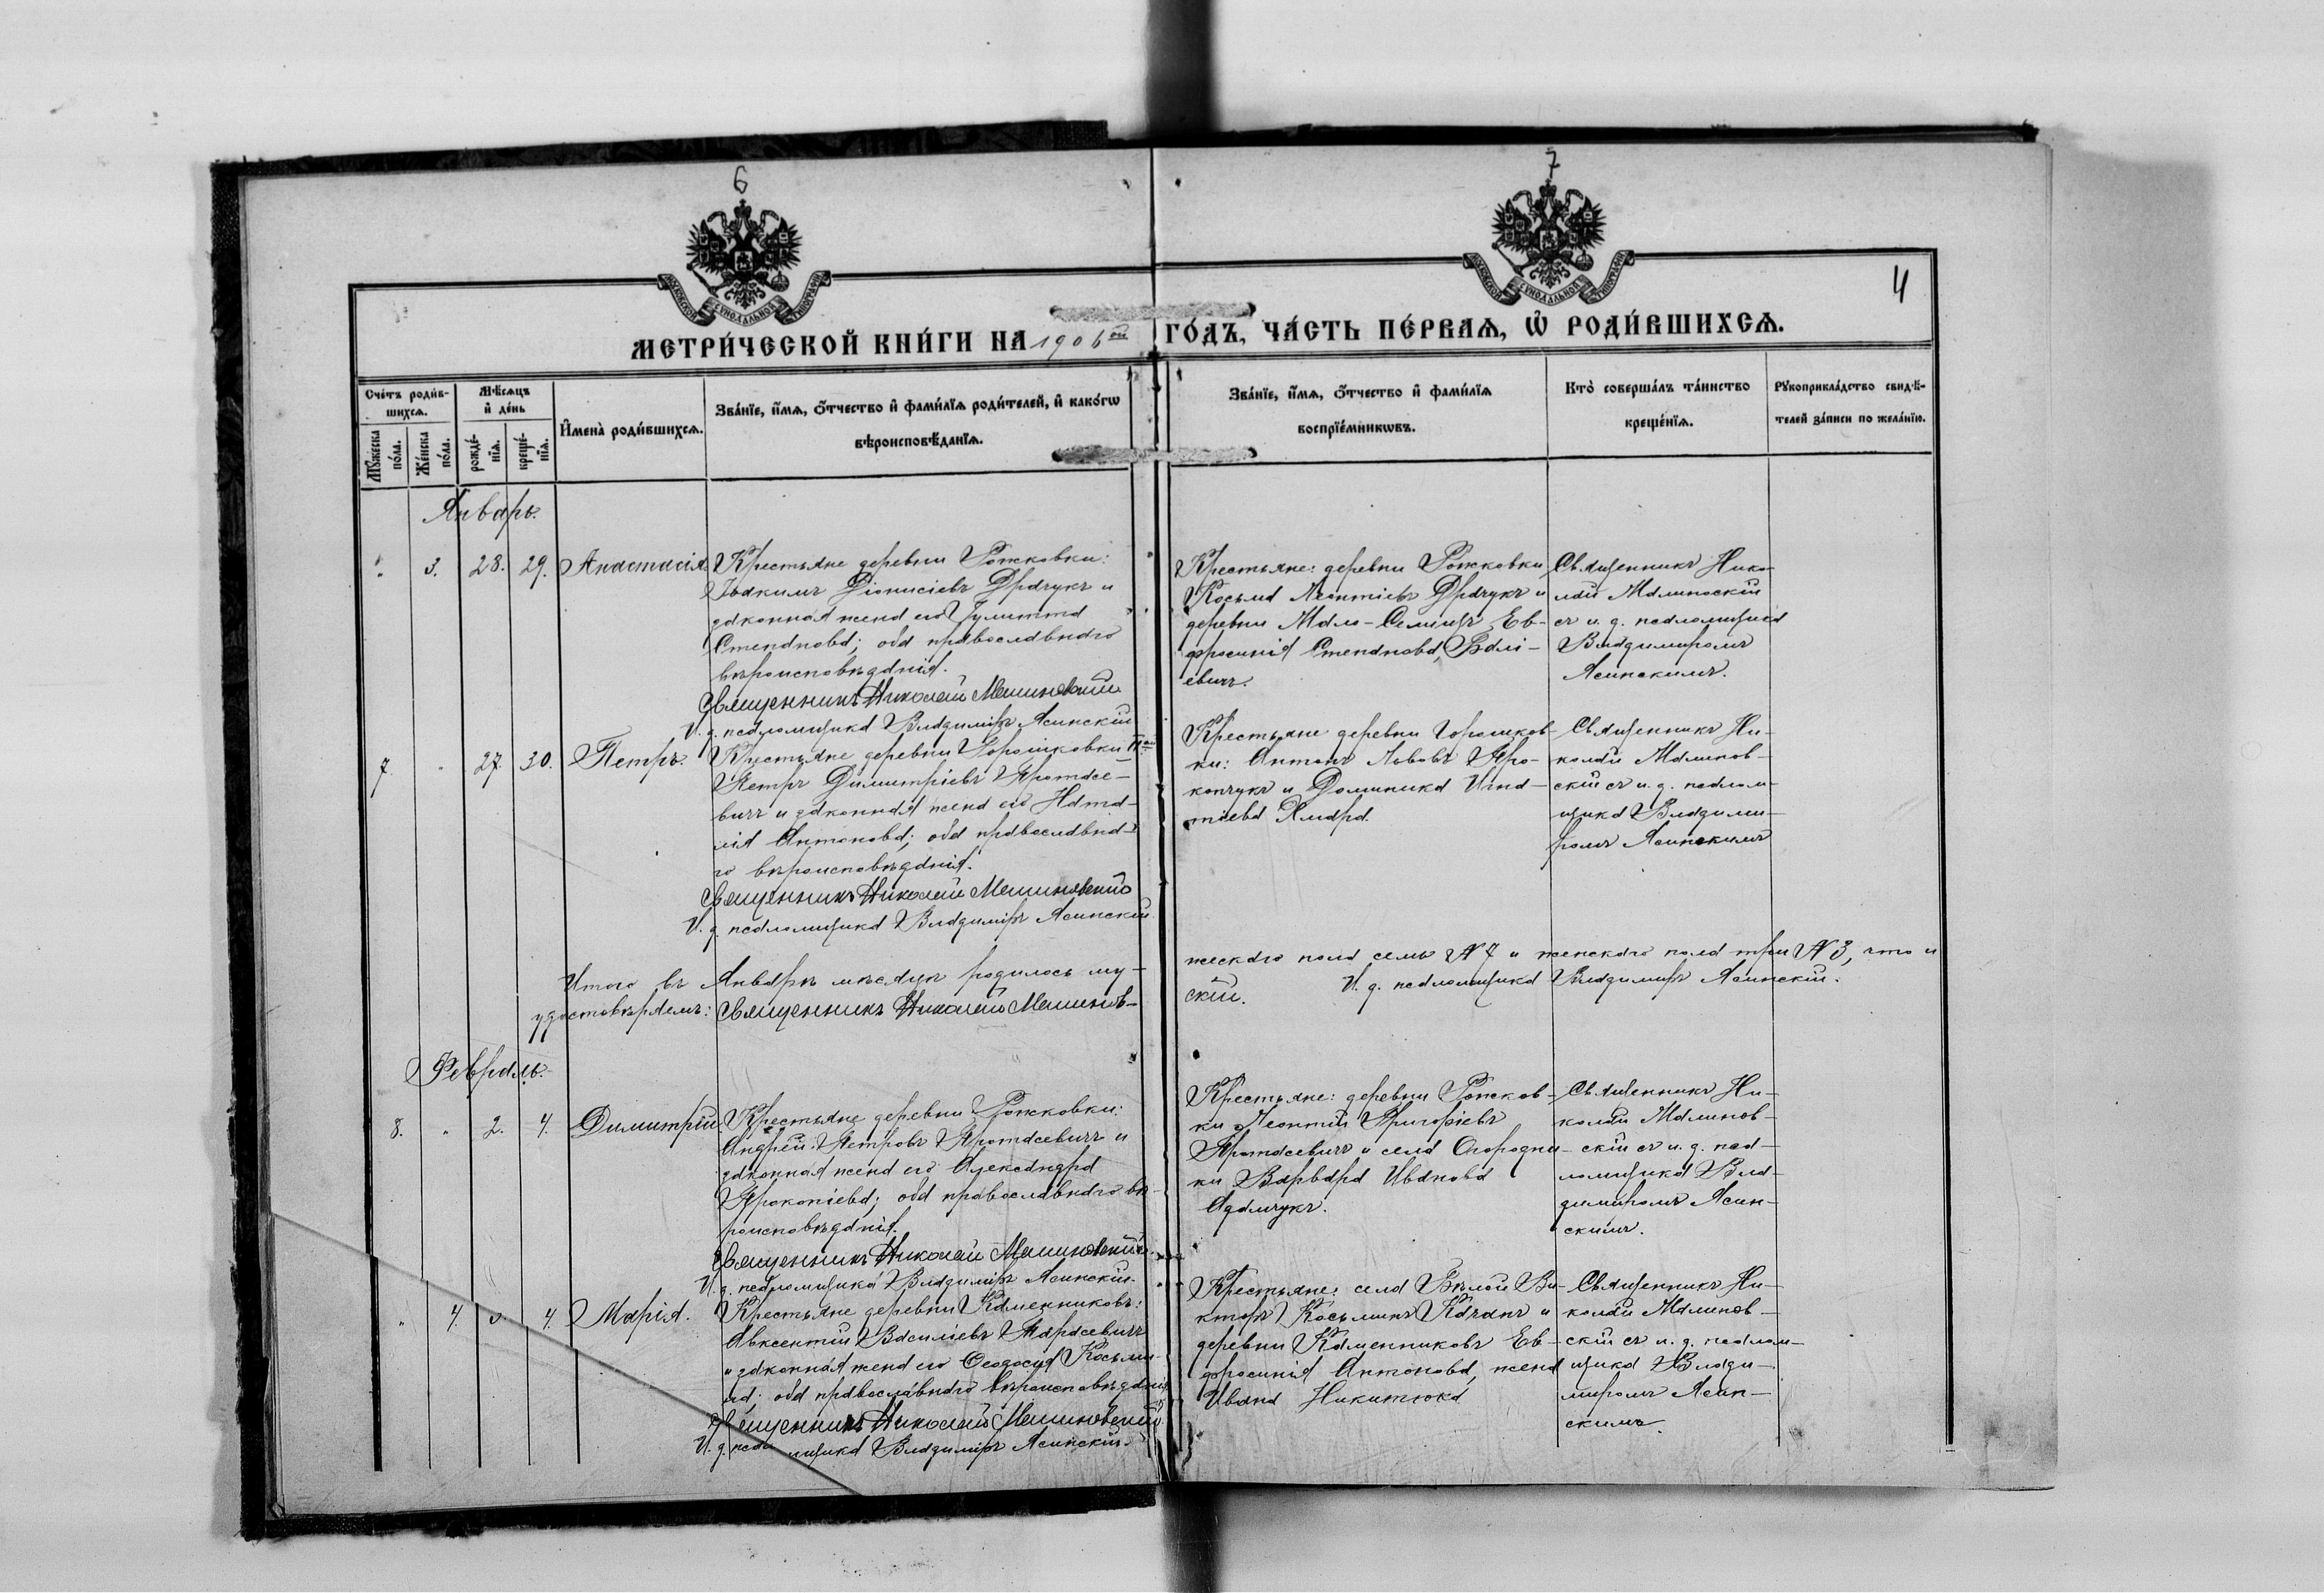 6
7
4
МОСКОВСКОЙ СѴНОДАЛЬНОЙ ТИПОГРАФІИ
МОСКОВСКОЙ СѴНОДАЛЬНОЙ ТИПОГРАФІИ
МЕТРИ́ЧЕСКОЙ КНИ́ГИ НА 1906 ой ГО́ДЪ, ЧА́СТЬ ПЕ́РВАѦ, Ѡ҆ РОДИ́ВШИХСѦ.
Сче́тъ роди́в-
шихсѧ.
Мꙋ́жеска по́ла.
Же́нска по́ла.
Мѣ́сѧцъ
и҆ де́нь
рожде́-
нїѧ.
креще́-
нїѧ.
И҆мена̀ роди́вшихсѧ.
Зва́нїе, и҆́мѧ, ѻ҆́тчество и҆ фами́лїѧ роди́телей, и҆ како́гѡ
вѣроисповѣ́данїѧ.
Зва́нїе, и҆́мѧ, ѻ҆́тчество и҆ фами́лїѧ
воспрїе́мникѡвъ.
Кто̀ соверша́лъ та́инство
креще́нїѧ.
Рꙋкоприкла́дство свидѣ́-
телей за́писи по жела́нїю.
Январь.
" 3. 28. 29. Анастасія.
Крестьяне деревни Рожковки:
Іоакимъ Діонисіевъ Драчукъ и
законная жена его Іулитта
Степанова; оба православнаго
вѣроисповѣданія.
Священникъ Николай Малиновскій
И. д. псаломщика Владиміръ Ясинскій
Крестьяне: деревни Рожковки
Косьма Леонтіевъ Драчукъ и
деревни Мало-Селищъ Ев-
фросинія Степанова Валі-
евичъ.
Священникъ Нико-
лай Малиноскій
съ и. д. псаломщика
Владимиромъ
Ясинскимъ.
7. " 27. 30. Петръ.
Крестьяне деревни Горошковки II ой
Петръ Димитріевъ Протасе-
вичъ и законная жена его Ната-
лія Антонова; оба православна-
го вѣроисповѣданія.
Священникъ Николай Малиновскій
И. д. псаломщика Владиміръ Ясинскій
Крестьяне деревни Горошков-
ки: Антонъ Львовъ Про-
копчукъ и Доминика Игна-
тіева
Священникъ Ни-
колай Малинов-
скій съ и. д. псалом-
щика Владими-
ромъ Ясинскимъ
Итого въ Январѣ мѣсяцѣ родилось му-
жескаго пола семь № 7 и женскаго пола три № 3, что и
удостовѣряемъ: Священникъ Николай Малинов-
скій. И. д. псаломщика Владиміръ Ясинскій.
Февраль.
8. " 2. 4. Димитрій.
Крестьяне деревни Рожковки:
Андрей Петровъ Протасевичъ и
законная жена его Александра
Прокопіева; оба православнаго вѣ-
роисповѣданія.
Священникъ Николай Малиновскій.
И. д. псаломщика Владиміръ Ясинскій.
Крестьяне: деревни Рожков-
ки Леонтій Григоріевъ
Протасевичъ и села Огородни-
ки Варвара Иванова
Адамчукъ.
Священникъ Ни-
колай Малинов-
скій съ и. д. пса-
ломщика Вла-
димиромъ Ясин-
скимъ.
" 4. 4 Марія.
Крестьяне деревни Каменниковъ:
Авксентій Василіевъ Тарасевичъ
и законная жена его Ѳеодосія Косьми-
на; оба православнаго вѣроисповѣданія
Священникъ Николай Малиновскій.
И. д. псаломщика Владиміръ Ясинскій.
Крестьяне: села Бѣлой Ви-
кторъ Косьминъ Качанъ и
деревни Каменниковъ Ев-
фросинія Антонова, жена
Ивана Никитюка
Священникъ Ни-
колай Малинов-
скій съ и. д. псалом-
щика Влади-
миромъ Ясин-
скимъ.